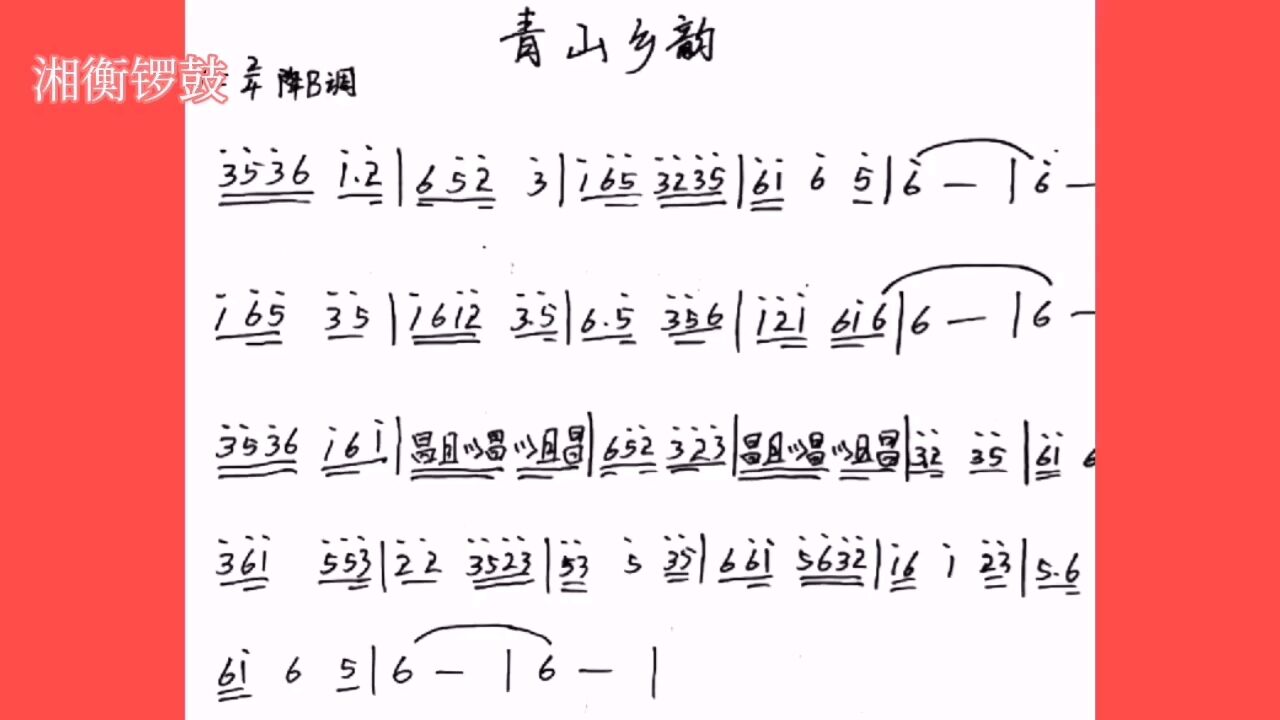 青山乡韵
湘衡锣鼓
2/4 降B调
3536 1.2 | 652 3 | 165 3235 | 61 6 5 | 6 — | 6 —
165 35 | 1612 3.5 | 6.5 356 | 121 616 | 6 — | 6 —
3536 161 | 冒且以冒以且冒 | 652 323 | 冒且以冒以且冒 | 32 35 | 61
361 553 | 22 3523 | 53 5 35 | 661 5632 | 16 1 23 | 5.6
61 6 5 | 6 — | 6 — |